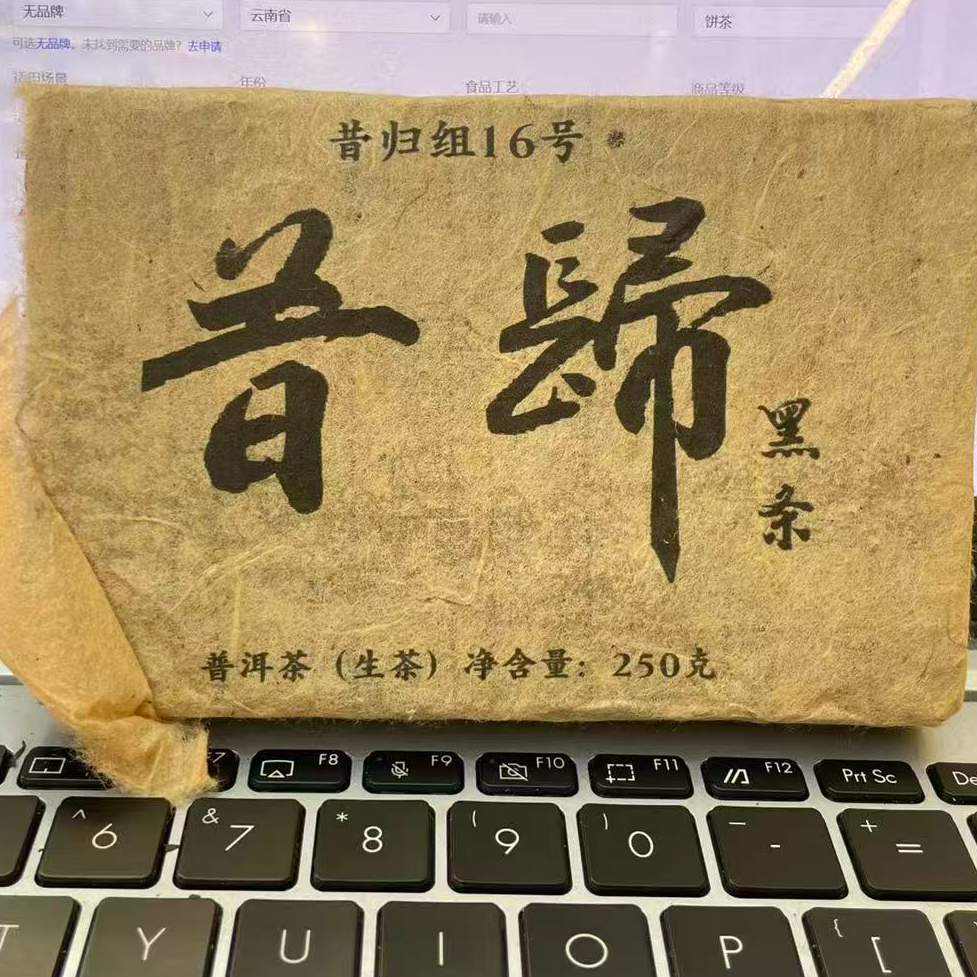 无品牌
云南省
请输入
饼茶
可选无品牌，未找到需要的品牌？去申请
适用场景
年份
食品工艺
商品等级
昔归组16号
昔歸
黑条
普洱茶（生茶）净含量：250克
F8
F9
F10
F11
F12
Prt Sc
^ 6
& 7
* 8
( 9
) 0
_ -
+ =
Y
U
I
O
P
{ [